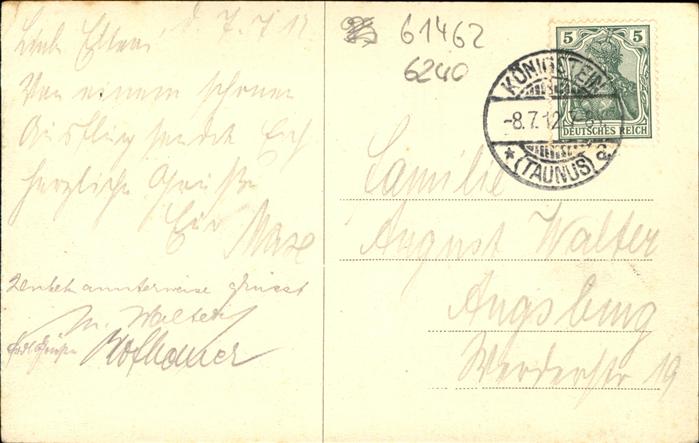 d. 7.7.12
Liebe Eltern,
Von einem schönen
Ausflug sendet Euch
herzliche Grüße
Eur Max
Unbekannterweise grüsst
M. Walter
Hofbauer
61462
6240
5 5
DEUTSCHES REICH
KÖNIGSTEIN
-8.7.12
* (TAUNUS) a
Familie
August Walter
Augsburg
Werderstr 19